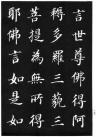 言世尊佛得阿
耨多羅三藐三
菩提為無所得
耶佛言如是如